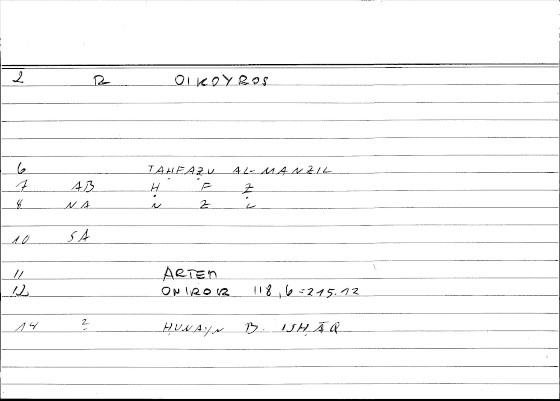 2 R OIKOYROS
6 TAḤFAẒU AL-MANZIL
7 AB Ḥ F Ẓ
8 NA N Z L
10 SA
11 ARTEM
12 ONIROK 118,6=215.12
14 ? ḤUNAYN B. ISḤĀQ